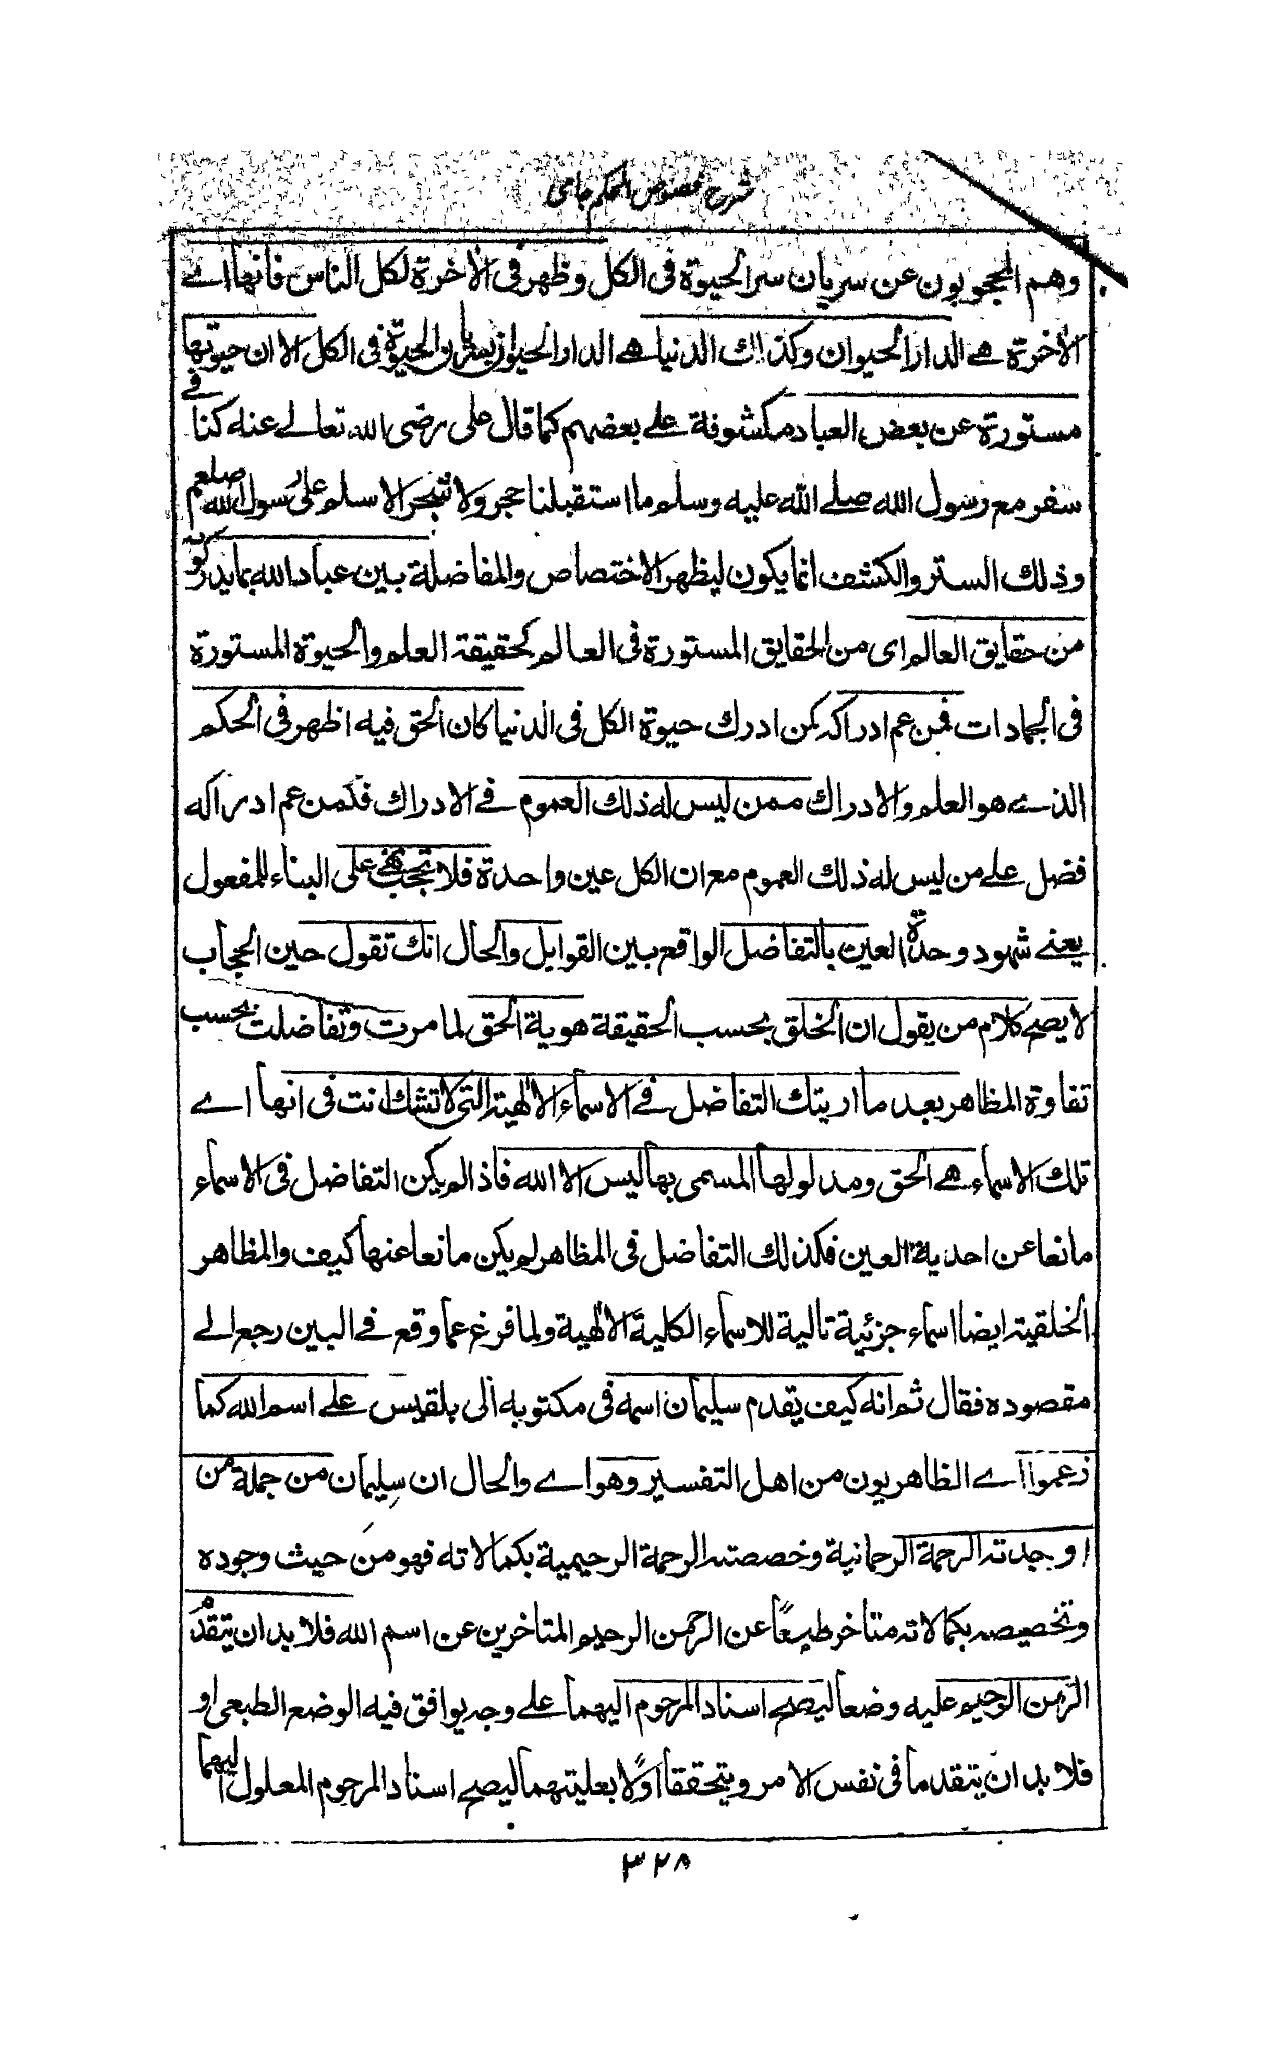 شرح فصوص الحكم جامى
وهم المحجوبون عن سريان سر الحيوة فى الكل وظهر فى الاخرة لكل الناس فانها اے
الاخرة هے الدار الحيوان وكذلك الدنيا هے الدار الحيوان بسريان الحيوة فى الكل الا ان حيوتها
مستورة عن بعض العباد مكشوفة علے بعضهم كما قال على رضى الله تعالے عنه كنا فے
سفر مع رسول الله صلے الله عليه وسلم ما استقبلنا حجر ولا شجر الا سلم على رسول الله صلعم
وذلك الستر والكشف انما يكون ليظهر الاختصاص والمفاضلة بين عباد الله بما يدركونه
من حقايق العالم اى من الحقايق المستورة فى العالم كحقيقة العلم والحيوة المستورة
فى الجمادات فمن عم ادراكه كمن ادرك حيوة الكل فى الدنيا كان الحق فيه اظهر فى الحكم
الذے هو العلم والادراك ممن ليس له ذلك العموم فے الادراك فكمن عم ادراكه
فضل علے من ليس له ذلك العموم مع ان الكل عين واحدة فلا تحجب على البناء للمفعول
يعنے شهود وحدة العين بالتفاضل الواقع بين القوابل والحال انك تقول حين الحجاب
لا يصح كلام من يقول ان الخلق بحسب الحقيقة هوية الحق لما مرت وتفاضلت بحسب
تفاوة المظاهر بعد ما اريتك التفاضل فے الاسماء الالهية التى لا تشك انت فى انها اے
تلك الاسماء هے الحق ومدلولها المسمى بها ليس الا الله فاذا لم يكن التفاضل فى الاسماء
مانعا عن احدية العين فكذلك التفاضل فى المظاهر لم يكن مانعا عنها كيف والمظاهر
الخلقية ايضا اسماء جزئية تالية للاسماء الكلية الالهية ولما فرغ عما وقع فے البين رجع الے
مقصوده فقال ثم انه كيف يقدم سليمان اسمه فى مكتوبه الى بلقيس علے اسم الله كما
زعموا اے الظاهريون من اهل التفسير وهو اے والحال ان سليمان من جملة من
اوجدته الرحمة الرحمانية وخصصته الرحمة الرحيمية بكمالاته فهو من حيث وجوده
وتخصيصه بكمالاته متاخر طبعا عن الرحمن الرحيم المتاخرين عن اسم الله فلا بد ان يتقدم
الرحمن الرحيم عليه وضعا ليصح اسناد المرحوم اليهما علے وجه يوافق فيه الوضع الطبعى او
فلا بد ان يتقدما فى نفس الامر ويتحققا اولا بعليتهما ليصح اسناد المرحوم المعلول اليهما
٣٢٨